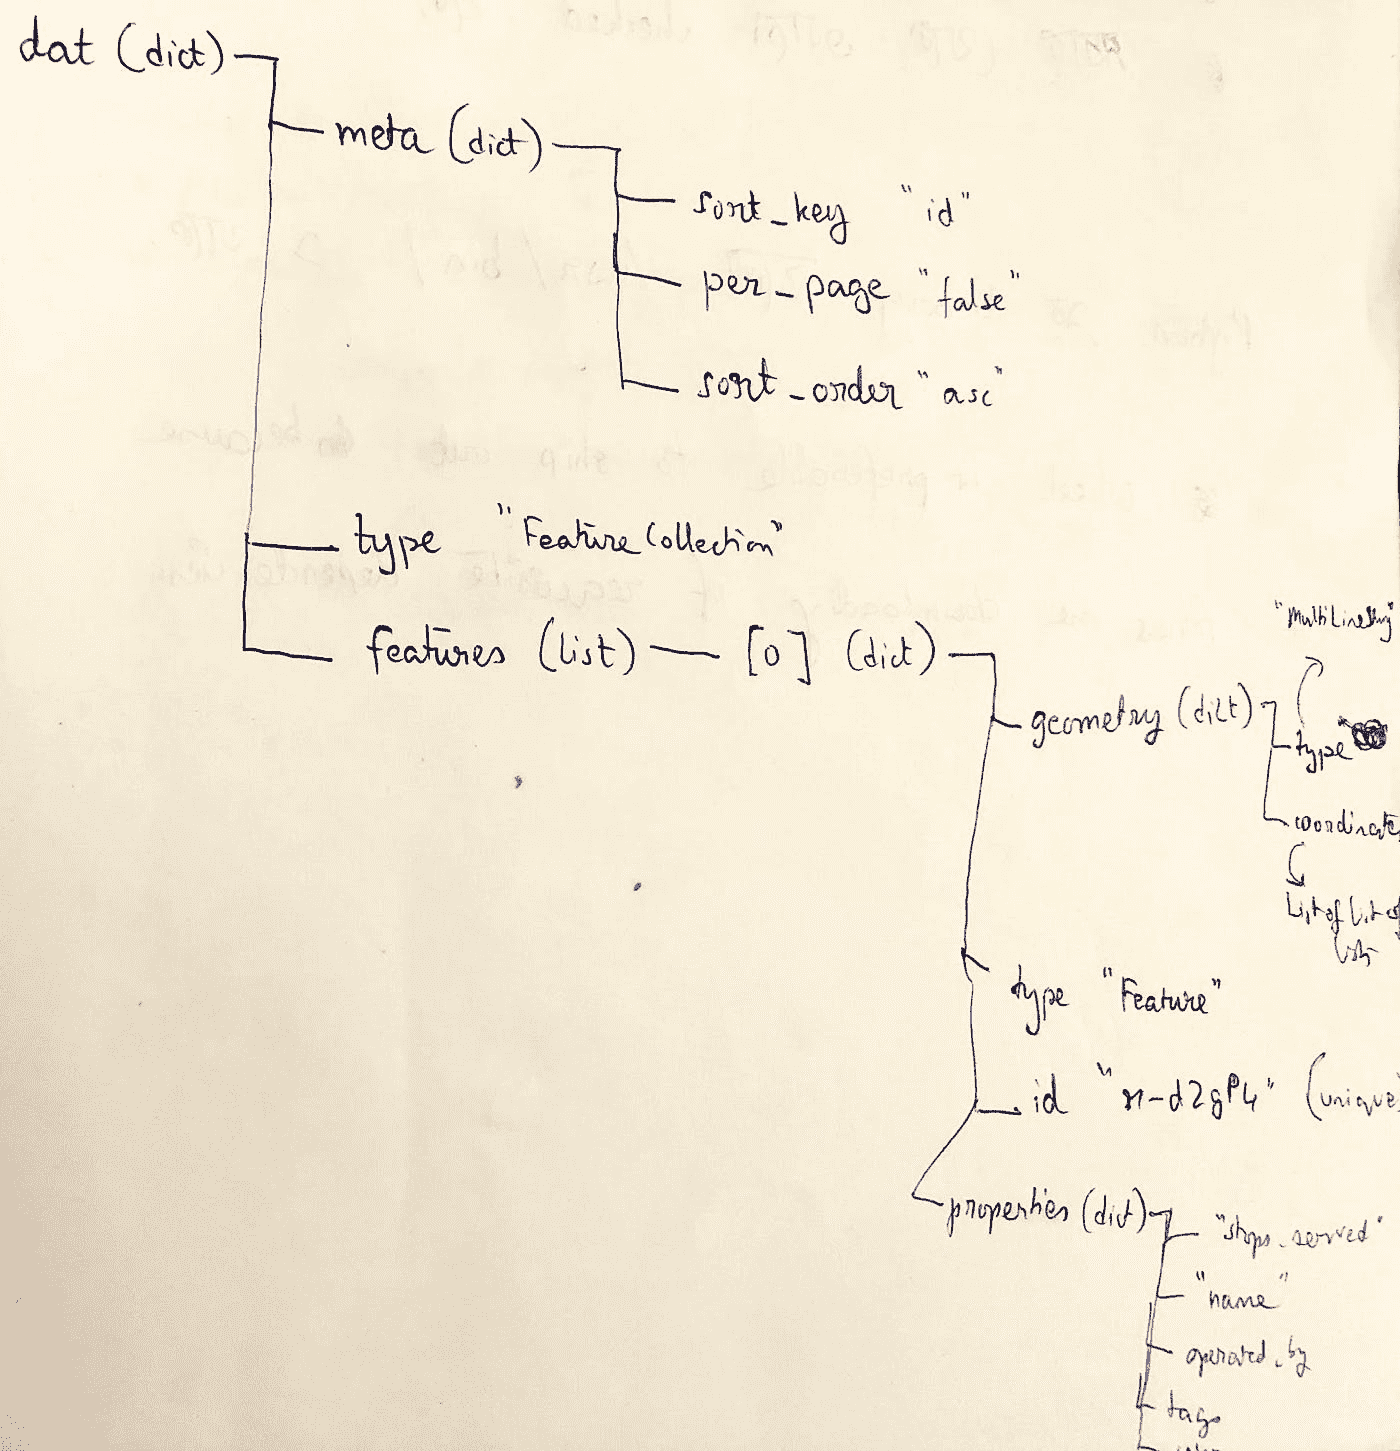 dat (dict)
meta (dict)
sort_key "id"
per_page "false"
sort_order "asc"
type "FeatureCollection"
features (list) — [0] (dict)
geometry (dict)
"MultiLineString"
type
coordinates
List of list of
lists
type "Feature"
id "r-d2gP4" (unique)
properties (dict)
"stops_served"
"name"
operated_by
tags